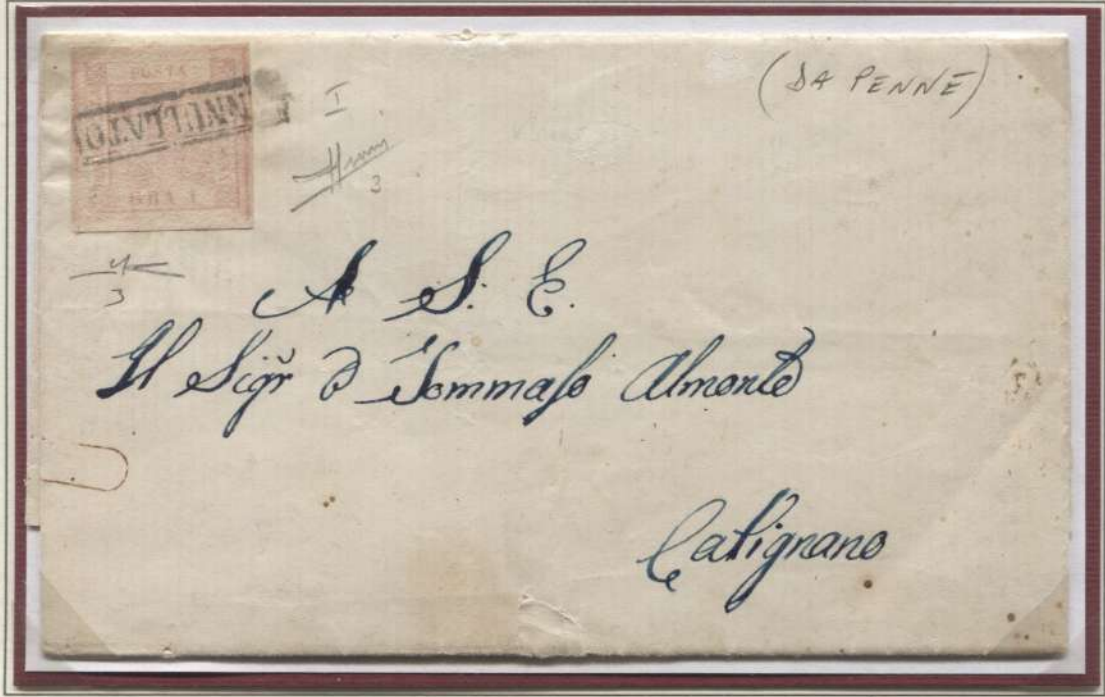 POSTA
ANNULLATO
GRA 1
I
3
(DA PENNE)
3
A S. E.
Il Sigr D Tommaso Almonte
Catignano